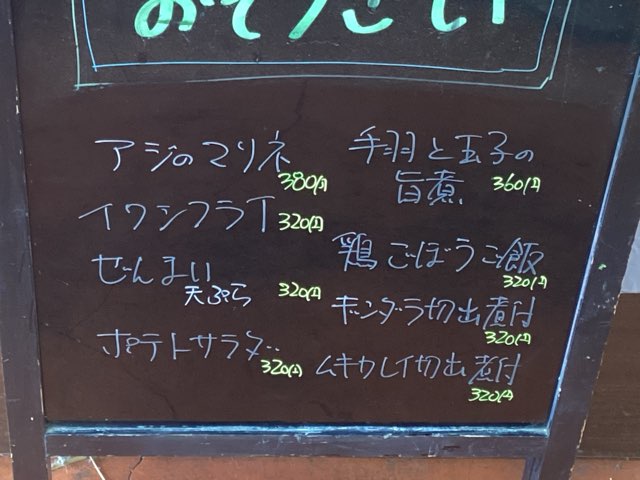 おそうざい
アジのマリネ
380円
イワシフライ 320円
ぜんまい
天ぷら 320円
ポテトサラダ
320円
手羽と玉子の
旨煮 360円
鶏ごぼうご飯
320円
ギンダラ切出煮付
320円
ムキカレイ切出煮付
320円